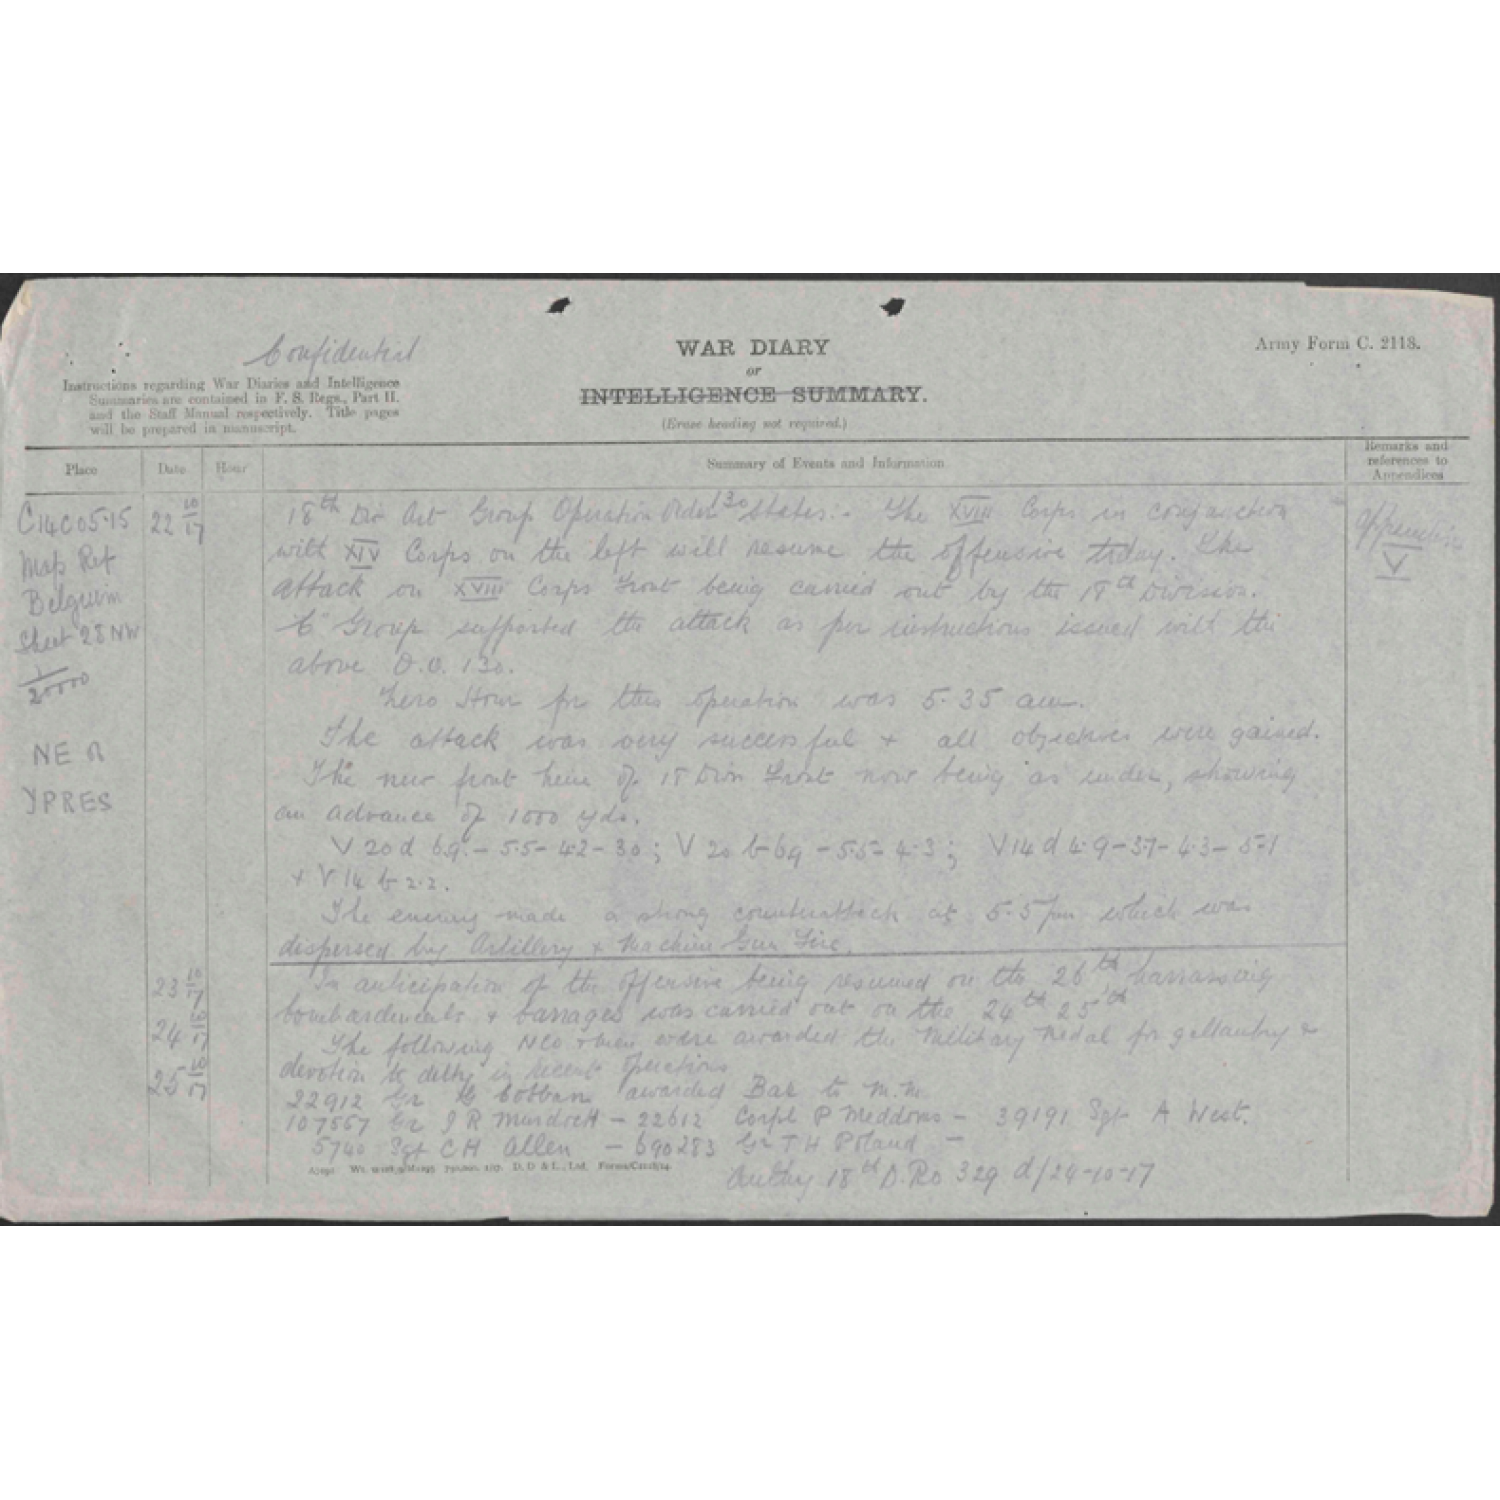 Confidential
WAR DIARY
or
INTELLIGENCE SUMMARY.
(Erase heading not required.)
Army Form C. 2118.
Instructions regarding War Diaries and Intelligence
Summaries are contained in F. S. Regs., Part II.
and the Staff Manual respectively. Title pages
will be prepared in manuscript.
Place
Date
Hour
Summary of Events and Information
Remarks and
references to
Appendices
C14C05.15
Map Ref
Belgium
Sheet 28NW
1/20000
NE of
YPRES
22 10/17
18th Div Art Group Operation Order 130 States:- The XVIII Corps in conjunction
with XIV Corps on the left will resume the offensive today. The
attack on XVIII Corps Front being carried out by the 18th Division.
"C" Group supported the attack as per instructions issued with the
above O.O. 130.
Zero Hour for this operation was 5.35 am.
The attack was very successful + all objectives were gained.
The new front line of 18 Divn Front now being as under, showing
an advance of 1000 yds.
V 20 d 6.9 - 5.5 - 4.2 - 3.0 ; V 20 b 6.9 - 5.5 - 4.3 ; V 14 d 4.9 - 3.7 - 4.3 - 5.1
+ V 14 b 2.2.
The enemy made a strong counterattack at 5.5 pm which was
dispersed by Artillery + Machine Gun Fire.
Appendix
V
23 10/17
24 10/17
25 10/17
In anticipation of the offensive being resumed on the 26th, harrassing
bombardments + barrages was carried out on the 24th 25th
The following NCO + Men were awarded the Military Medal for gallantry +
devotion to duty in recent operations
22912 Gr Cobban awarded Bar to M.M.
107557 Gr J R Murdoch - 22612 Corpl P Meddows - 39191 Sgt A West.
5740 Sgt C H Allen - 690283 Gr T H Poland -
Authy 18th D.Ro 329 d/24-10-17
D. D. & L., Ltd.